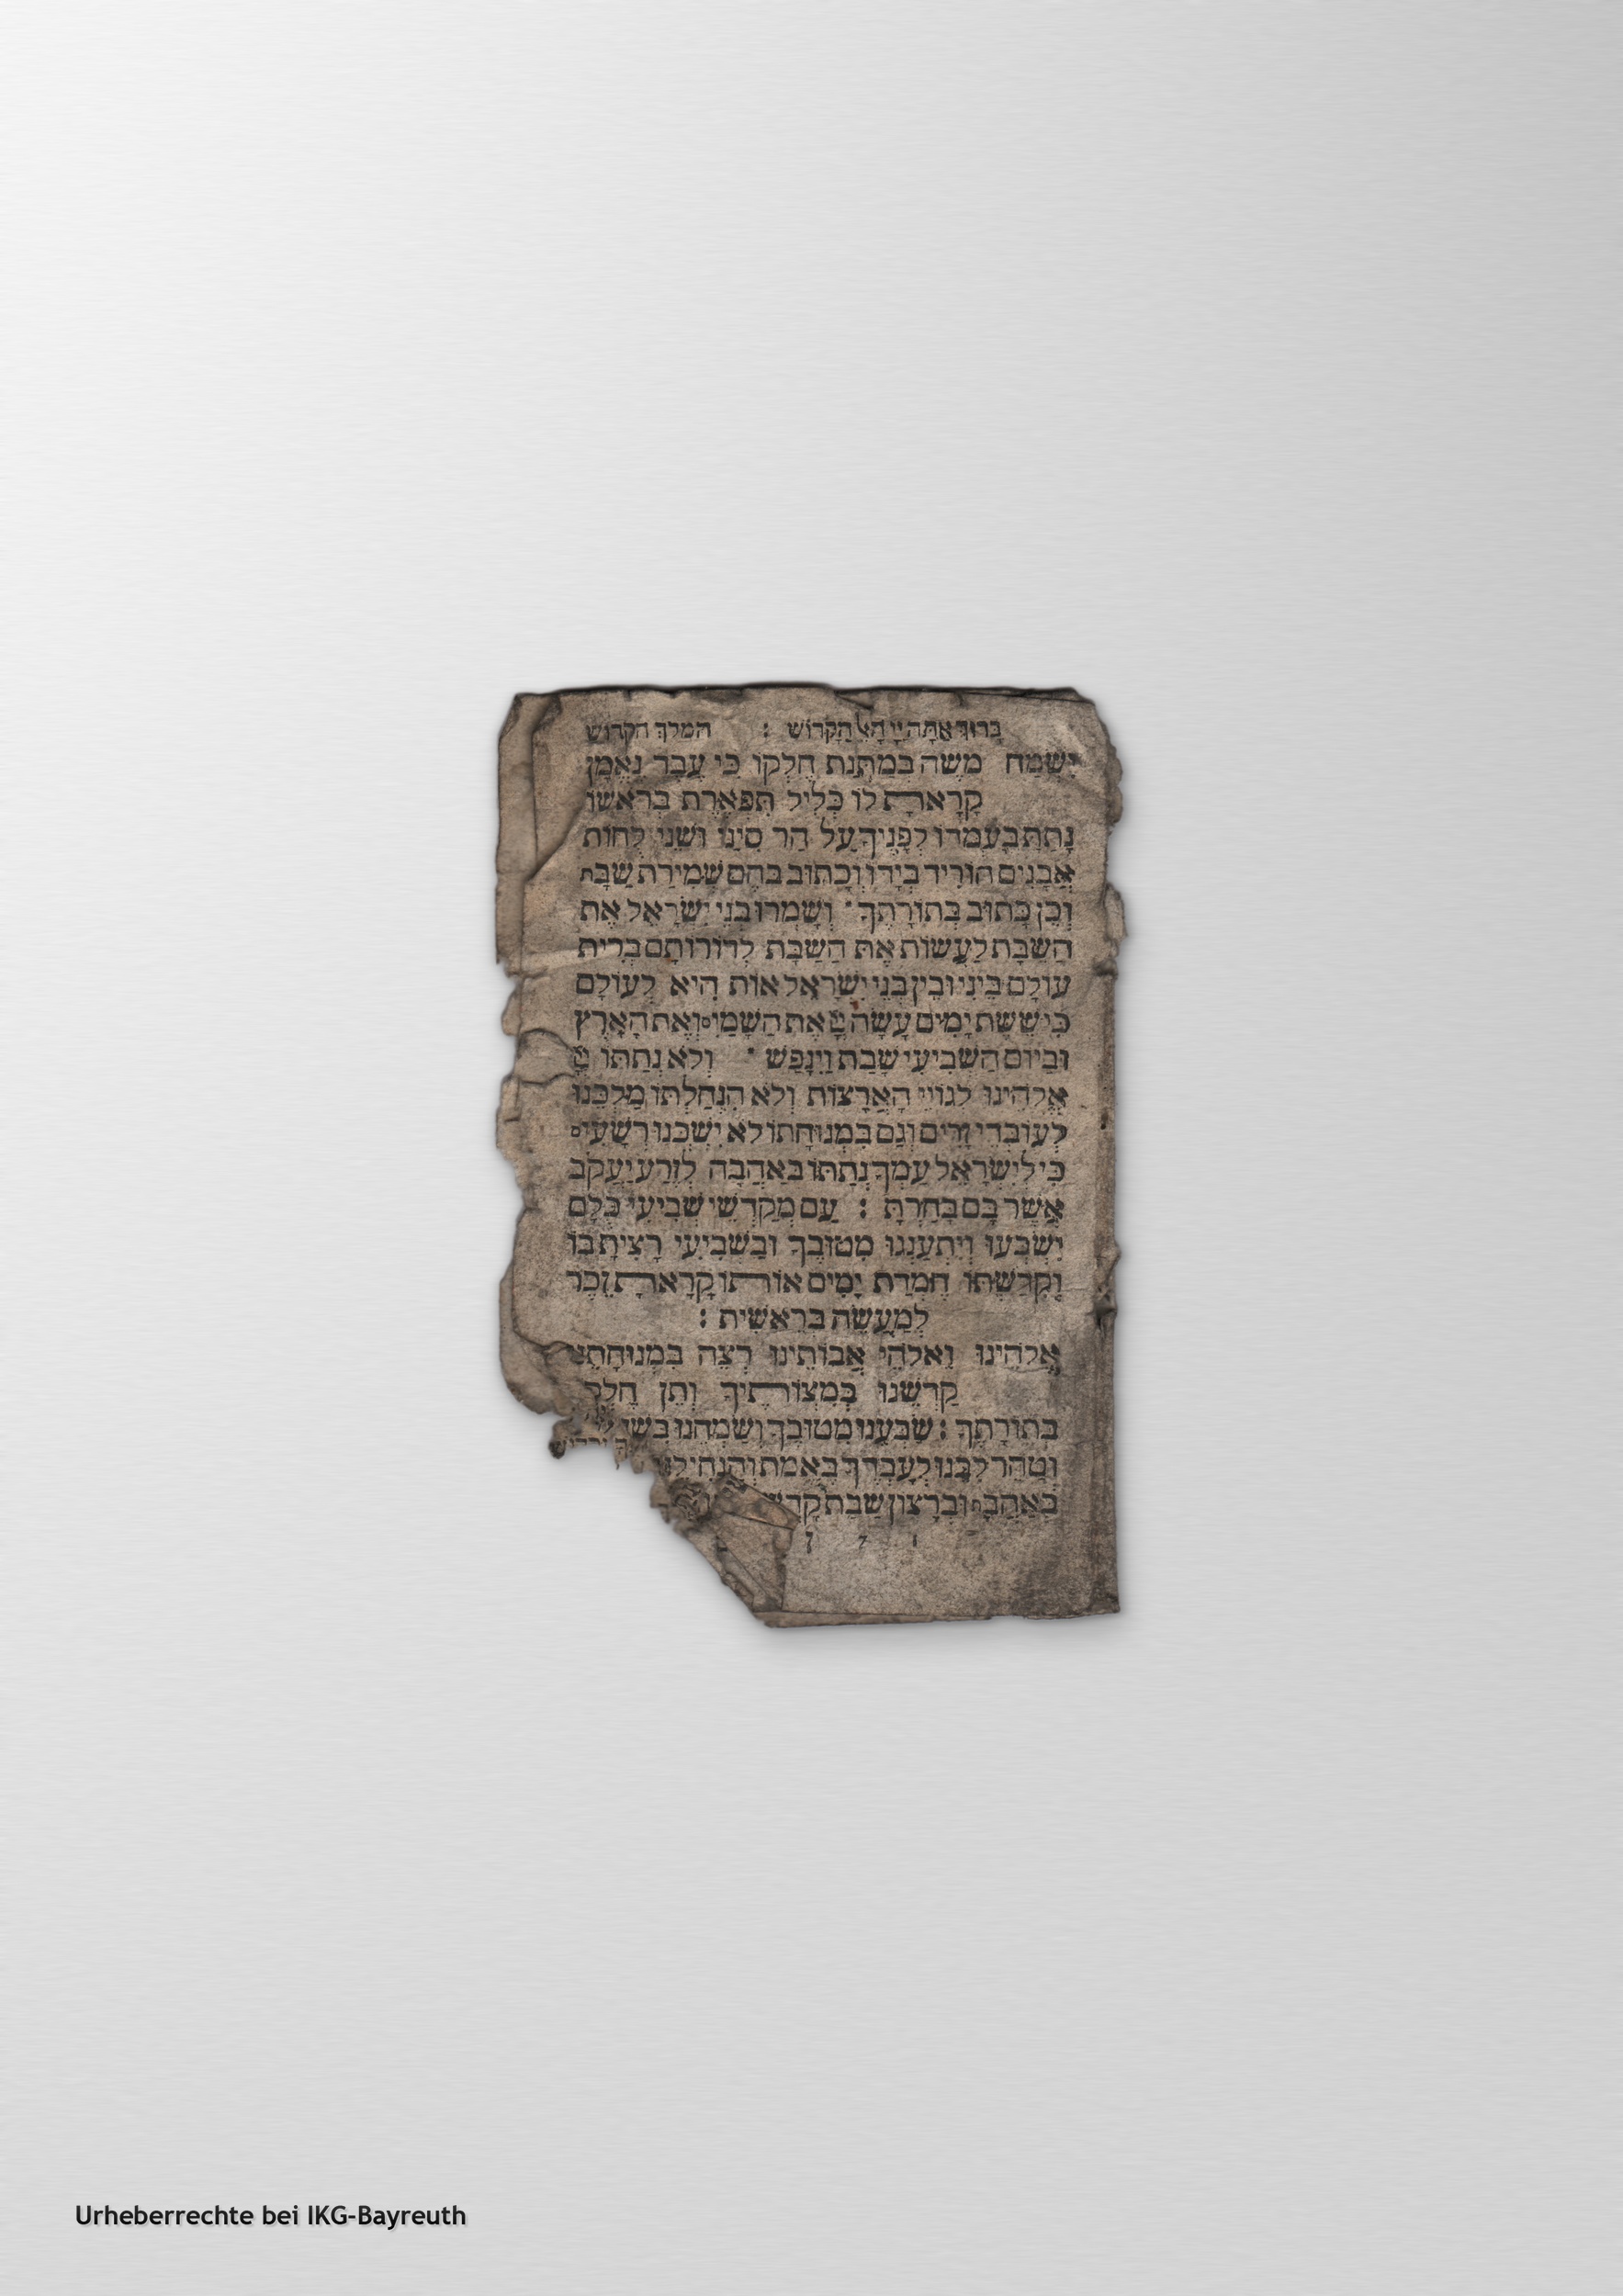 בָּרוּךְ אַתָּה יְיָ הָאֵל הַקָּדוֹשׁ : המלך הקדוש
יִשְׂמַח משֶׁה בְּמַתְּנַת חֶלְקוֹ כִּי עֶבֶד נֶאֱמָן
קָרָאתָ לוֹ כְּלִיל תִּפְאֶרֶת בְּרֹאשׁוֹ
נָתַתָּ בְּעָמְדוֹ לְפָנֶיךָ עַל הַר סִינַי וּשְׁנֵי לֻחוֹת
אֲבָנִים הוֹרִיד בְּיָדוֹ וְכָתוּב בָּהֶם שְׁמִירַת שַׁבָּת
וְכֵן כָּתוּב בְּתוֹרָתֶךָ · וְשָׁמְרוּ בְנֵי יִשְׂרָאֵל אֶת
הַשַּׁבָּת לַעֲשׂוֹת אֶת הַשַּׁבָּת לְדוֹרוֹתָם בְּרִית
עוֹלָם בֵּינִי וּבֵין בְּנֵי יִשְׂרָאֵל אוֹת הִיא לְעוֹלָם
כִּי שֵׁשֶׁת יָמִים עָשָׂה יְיָ אֶת הַשָּׁמַיִם וְאֶת הָאָרֶץ
וּבַיּוֹם הַשְּׁבִיעִי שָׁבַת וַיִּנָּפַשׁ · וְלֹא נְתַתּוֹ יְיָ
אֱלֹהֵינוּ לְגוֹיֵי הָאֲרָצוֹת וְלֹא הִנְחַלְתּוֹ מַלְכֵּנוּ
לְעוֹבְדֵי זָרִים וְגַם בִּמְנוּחָתוֹ לֹא יִשְׁכְּנוּ רְשָׁעִים
כִּי לְיִשְׂרָאֵל עַמְּךָ נְתַתּוֹ בְּאַהֲבָה לְזֶרַע יַעֲקֹב
אֲשֶׁר בָּם בָּחָרְתָּ : עַם מְקַדְּשֵׁי שְׁבִיעִי כֻּלָּם
יִשְׂבְּעוּ וְיִתְעַנְּגוּ מִטּוּבֶךָ וּבַשְּׁבִיעִי רָצִיתָ בּוֹ
וְקִדַּשְׁתּוֹ חֶמְדַּת יָמִים אוֹתוֹ קָרָאתָ זֵכֶר
לְמַעֲשֵׂה בְרֵאשִׁית :
אֱלֹהֵינוּ וֵאלֹהֵי אֲבוֹתֵינוּ רְצֵה בִמְנוּחָתֵנוּ
קַדְּשֵׁנוּ בְּמִצְוֹתֶיךָ וְתֵן
בְּתוֹרָתֶךָ : שַׂבְּעֵנוּ מִטּוּבֶךָ וְשַׂמְּחֵנוּ
וְטַהֵר לִבֵּנוּ לְעָבְדְּךָ בֶּאֱמֶת
בְּאַהֲבָה וּבְרָצוֹן שַׁבַּת
Urheberrechte bei IKG-Bayreuth